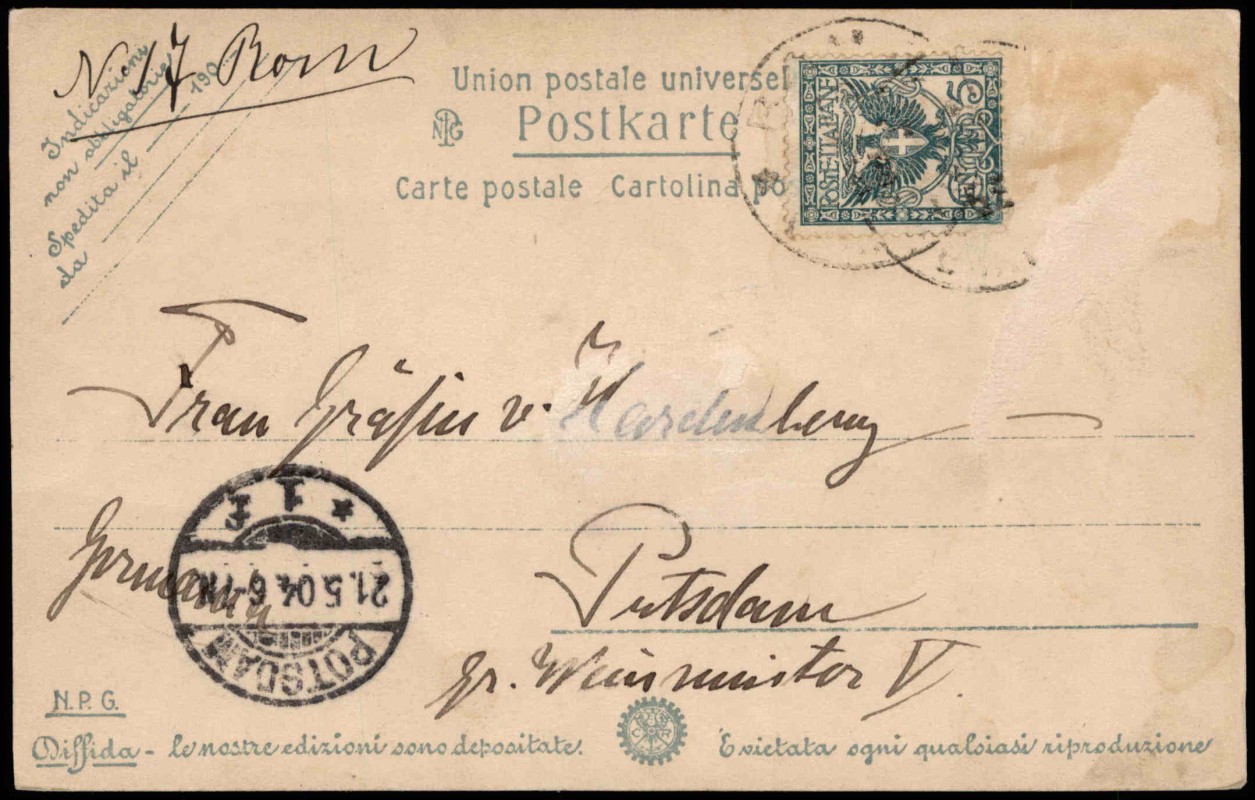 N 17 Rom
Indicazioni
non obbligatorie
Spedita il 190
da
Union postale universel
NPG Postkarte
Carte postale Cartolina po
POSTE ITALIANE
5
Frau Gräfin v. Hardenberg
Germania
Potsdam
gr. Weinmeister V.
POTSDAM
21.5.04. 6-7N
* 1
N.P.G.
Diffida - le nostre edizioni sono depositate.
È vietata ogni qualsiasi riproduzione